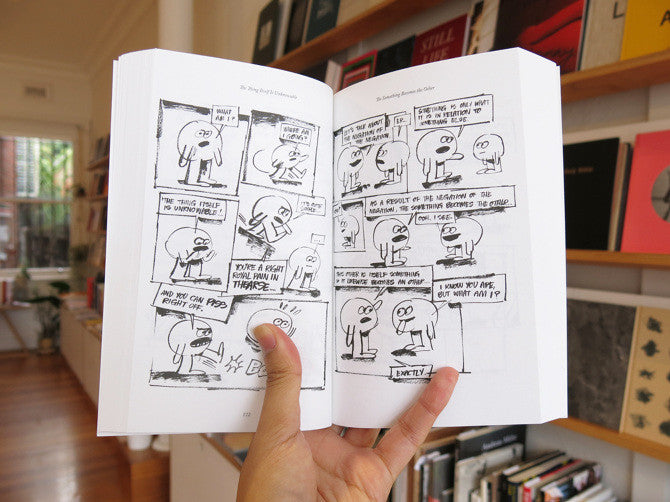 The Thing Itself Is Unknowable
WHAT
AM I?
WHERE AM
I GOING?
'THE THING ITSELF
IS UNKNOWABLE!
YOU'RE A RIGHT
ROYAL PAIN IN
THEARSE...
AND YOU CAN PISS
RIGHT OFF.
122
The Something Becomes the Other
LET'S TALK ABOUT
THE NEGATION OF
THE NEGATION.
ER..
SOMETHING IS ONLY WHAT
IT IS IN RELATION TO
SOMETHING ELSE
AS A RESULT OF THE NEGATION OF THE
NEGATION, THE SOMETHING BECOMES THE OTHER.
OOH. I SEE.
THIS OTHER IS ITSELF SOMETHING
IT LIKEWISE BECOMES AN OTHER
I KNOW YOU ARE,
BUT WHAT AM I?
EXACTLY.
STILL